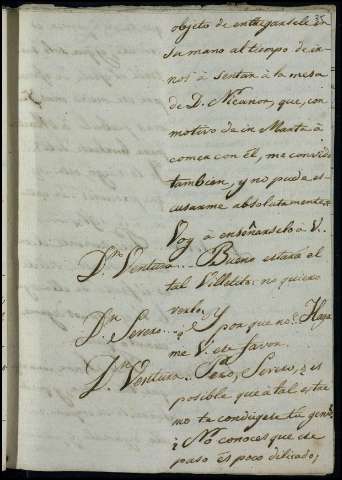 35
objeto de entregarsele en
su mano al tiempo de ir-
nos à sentar à la mesa
de D. Nicanor, que, con
motivo de ir Marta à
comer con él, me convidó
tambien, y no pude es-
cusarme absolutamente.
Voy à enseñarselo à V.
Dn. Ventura... Bueno estará el
tal Villetito: no quiero
verlo.
Dn. Severo... ¿Y por que no? Haga
me V. ese favor.
Dn. Ventura... Pero, Severo, ¿es
posible que à tal estre
mo te condugese tu genio?
¿No conoces que ese
paso es poco delicado;